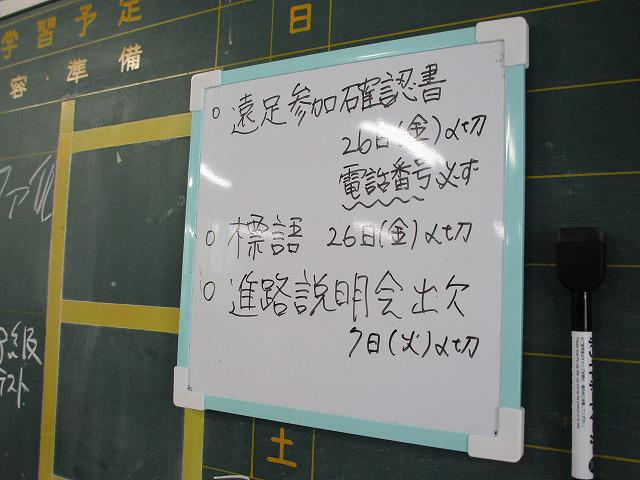 学習予定
容・準備
日
○ 遠足参加確認書
26日(金)〆切
電話番号必ず
○ 標語 26日(金)〆切
○ 進路説明会出欠
7日(火)〆切
ファイル
級
テスト
土